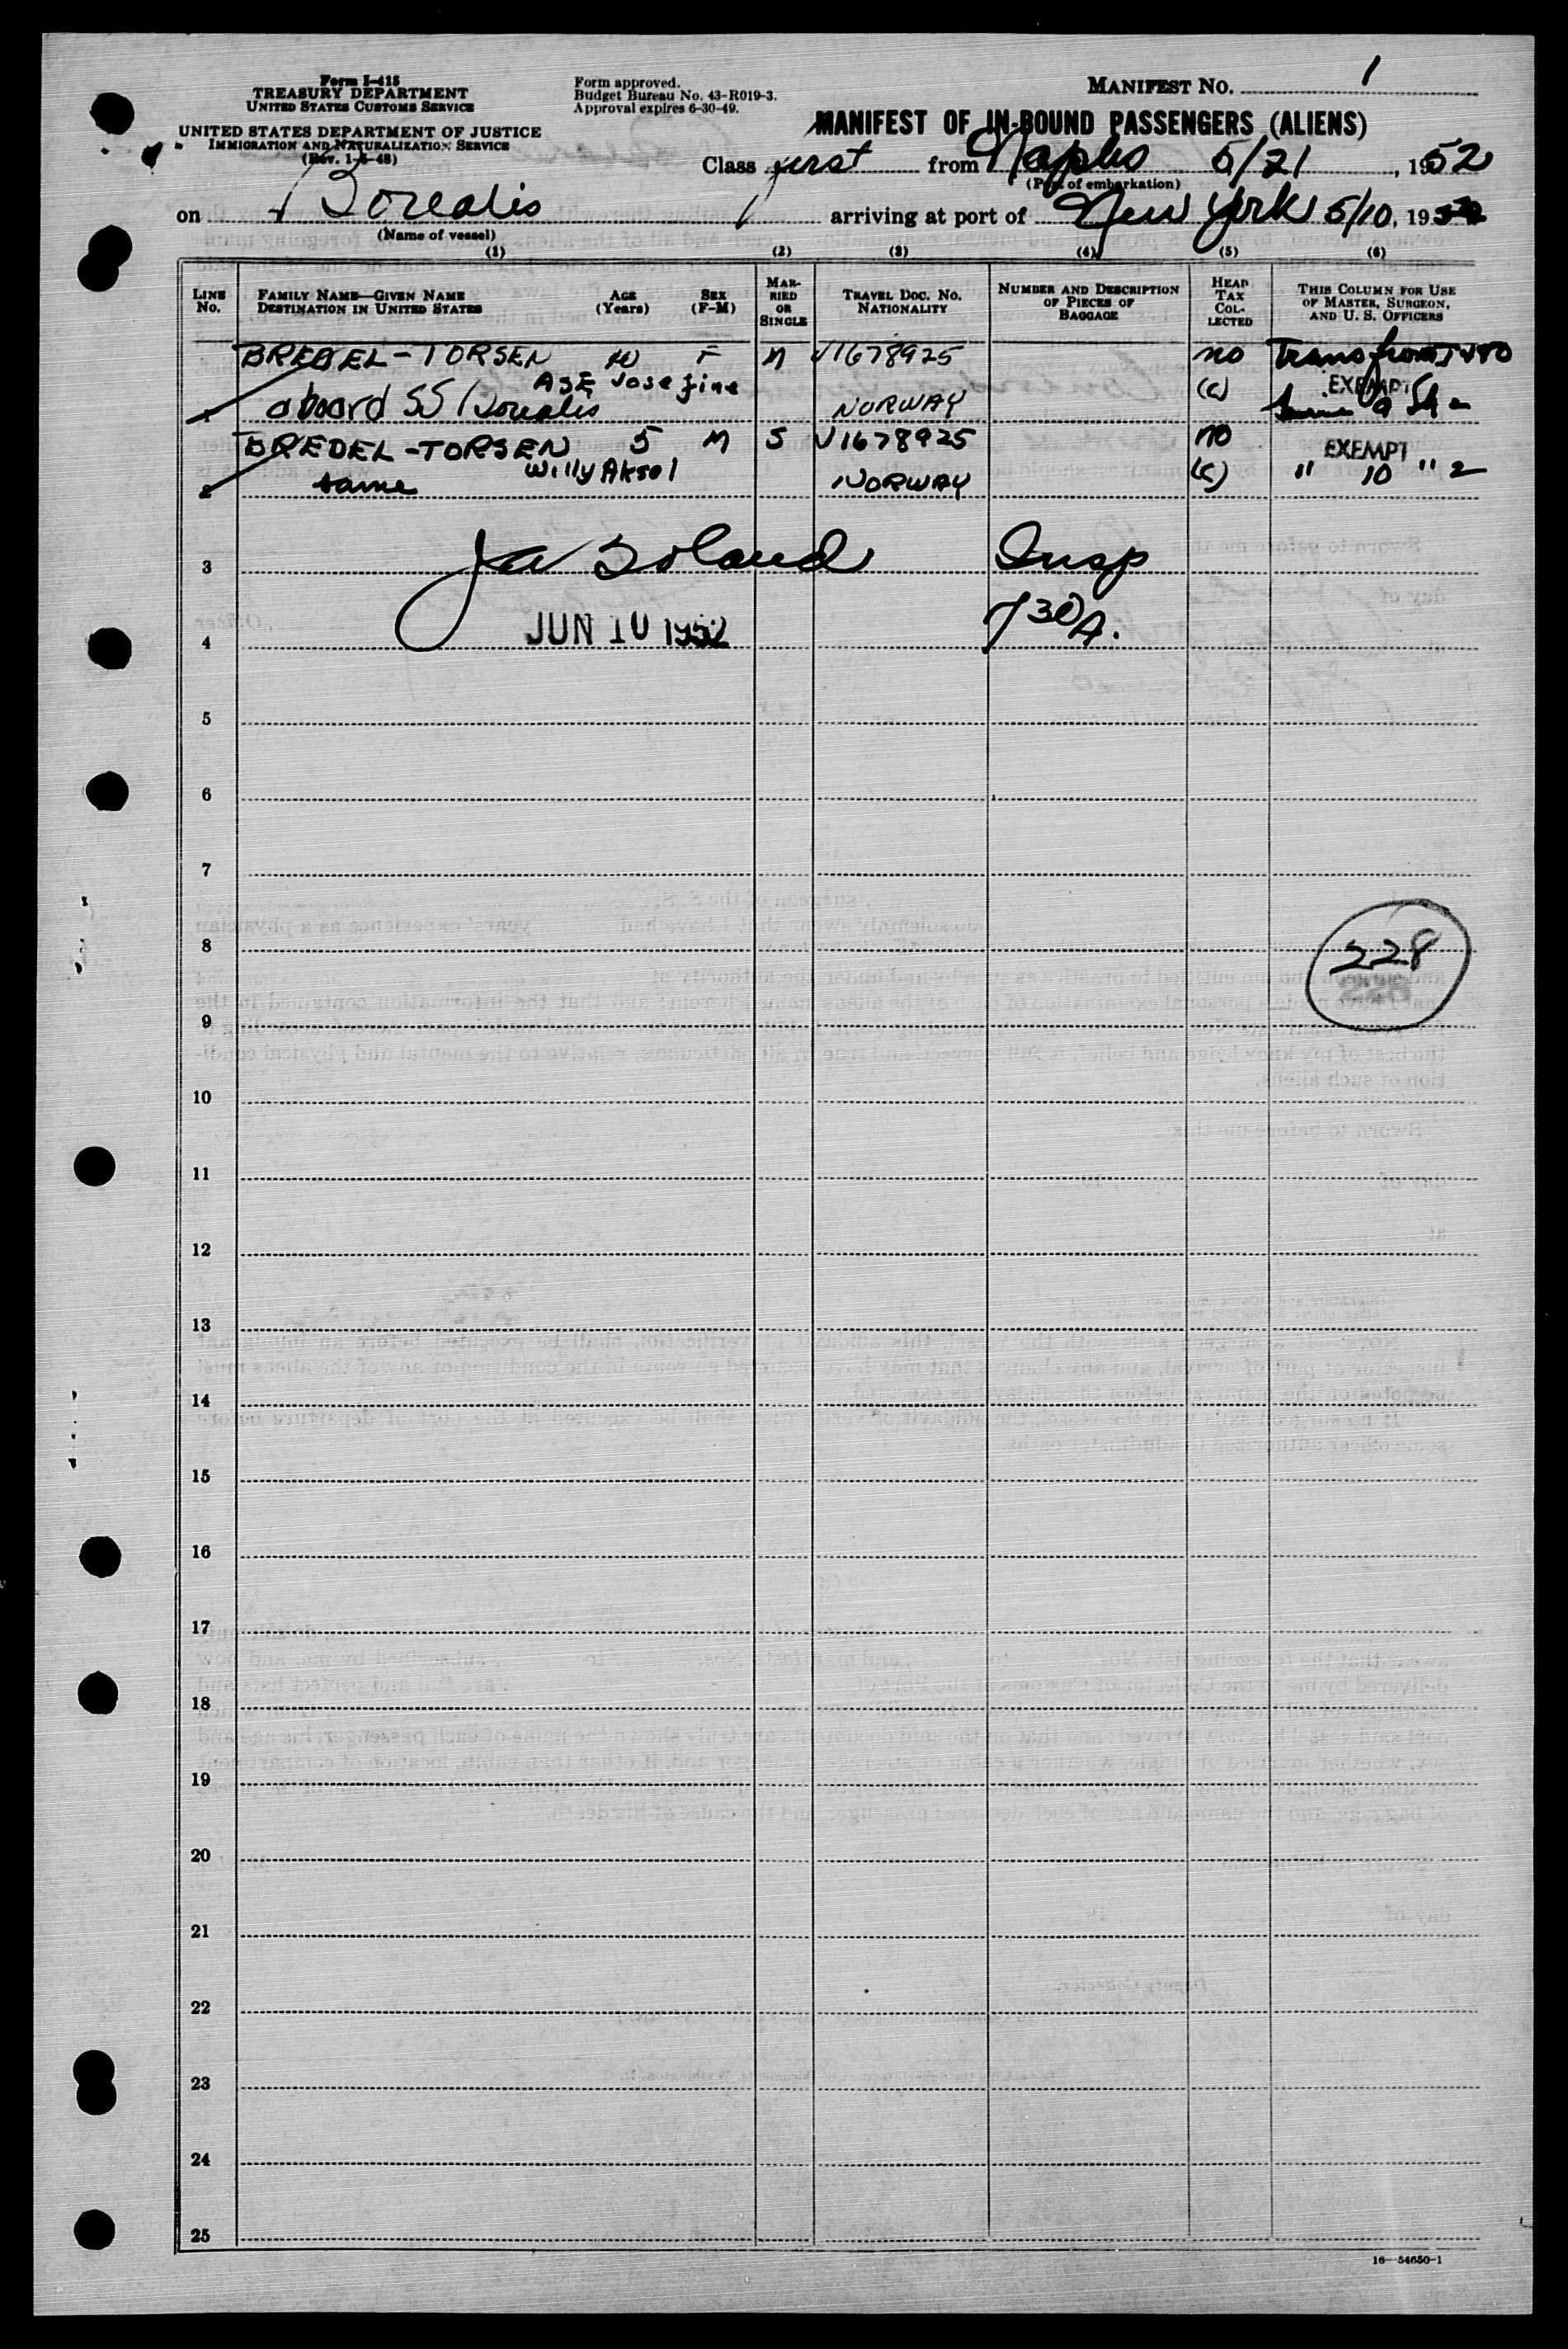 Form I-415
TREASURY DEPARTMENT
UNITED STATES CUSTOMS SERVICE
UNITED STATES DEPARTMENT OF JUSTICE
IMMIGRATION AND NATURALIZATION SERVICE
(Rev. 1-5-48)
Form approved.
Budget Bureau No. 43-R019-3.
Approval expires 6-30-49.
MANIFEST No. 1
MANIFEST OF IN-BOUND PASSENGERS (ALIENS)
Class first from Naples 5/21, 1952
(Port of embarkation)
on Borealis arriving at port of New York 5/10, 19
(Name of vessel)
(1) (2) (3) (4) (5) (6)
LINE No.
FAMILY NAME—GIVEN NAME
DESTINATION IN UNITED STATES
AGE (Years)
SEX (F-M)
MARRIED OR SINGLE
TRAVEL DOC. NO.
NATIONALITY
NUMBER AND DESCRIPTION OF PIECES OF BAGGAGE
HEAD TAX COLLECTED
THIS COLUMN FOR USE OF MASTER, SURGEON, AND U. S. OFFICERS
BREDEL-TORSEN F M V1678925 no Trans from
Josefine (c) EXEMPT
1 aboard SS Borealis NORWAY
BREDEL-TORSEN 5 M S V1678925 no EXEMPT
Willy Aksel
2 same NORWAY (c) " 10 " 2
3 Insp
4 JUN 10 1952 730 A.
5
6
7
8
228
9
10
11
12
13
14
15
16
17
18
19
20
21
22
23
24
25
16—54650-1